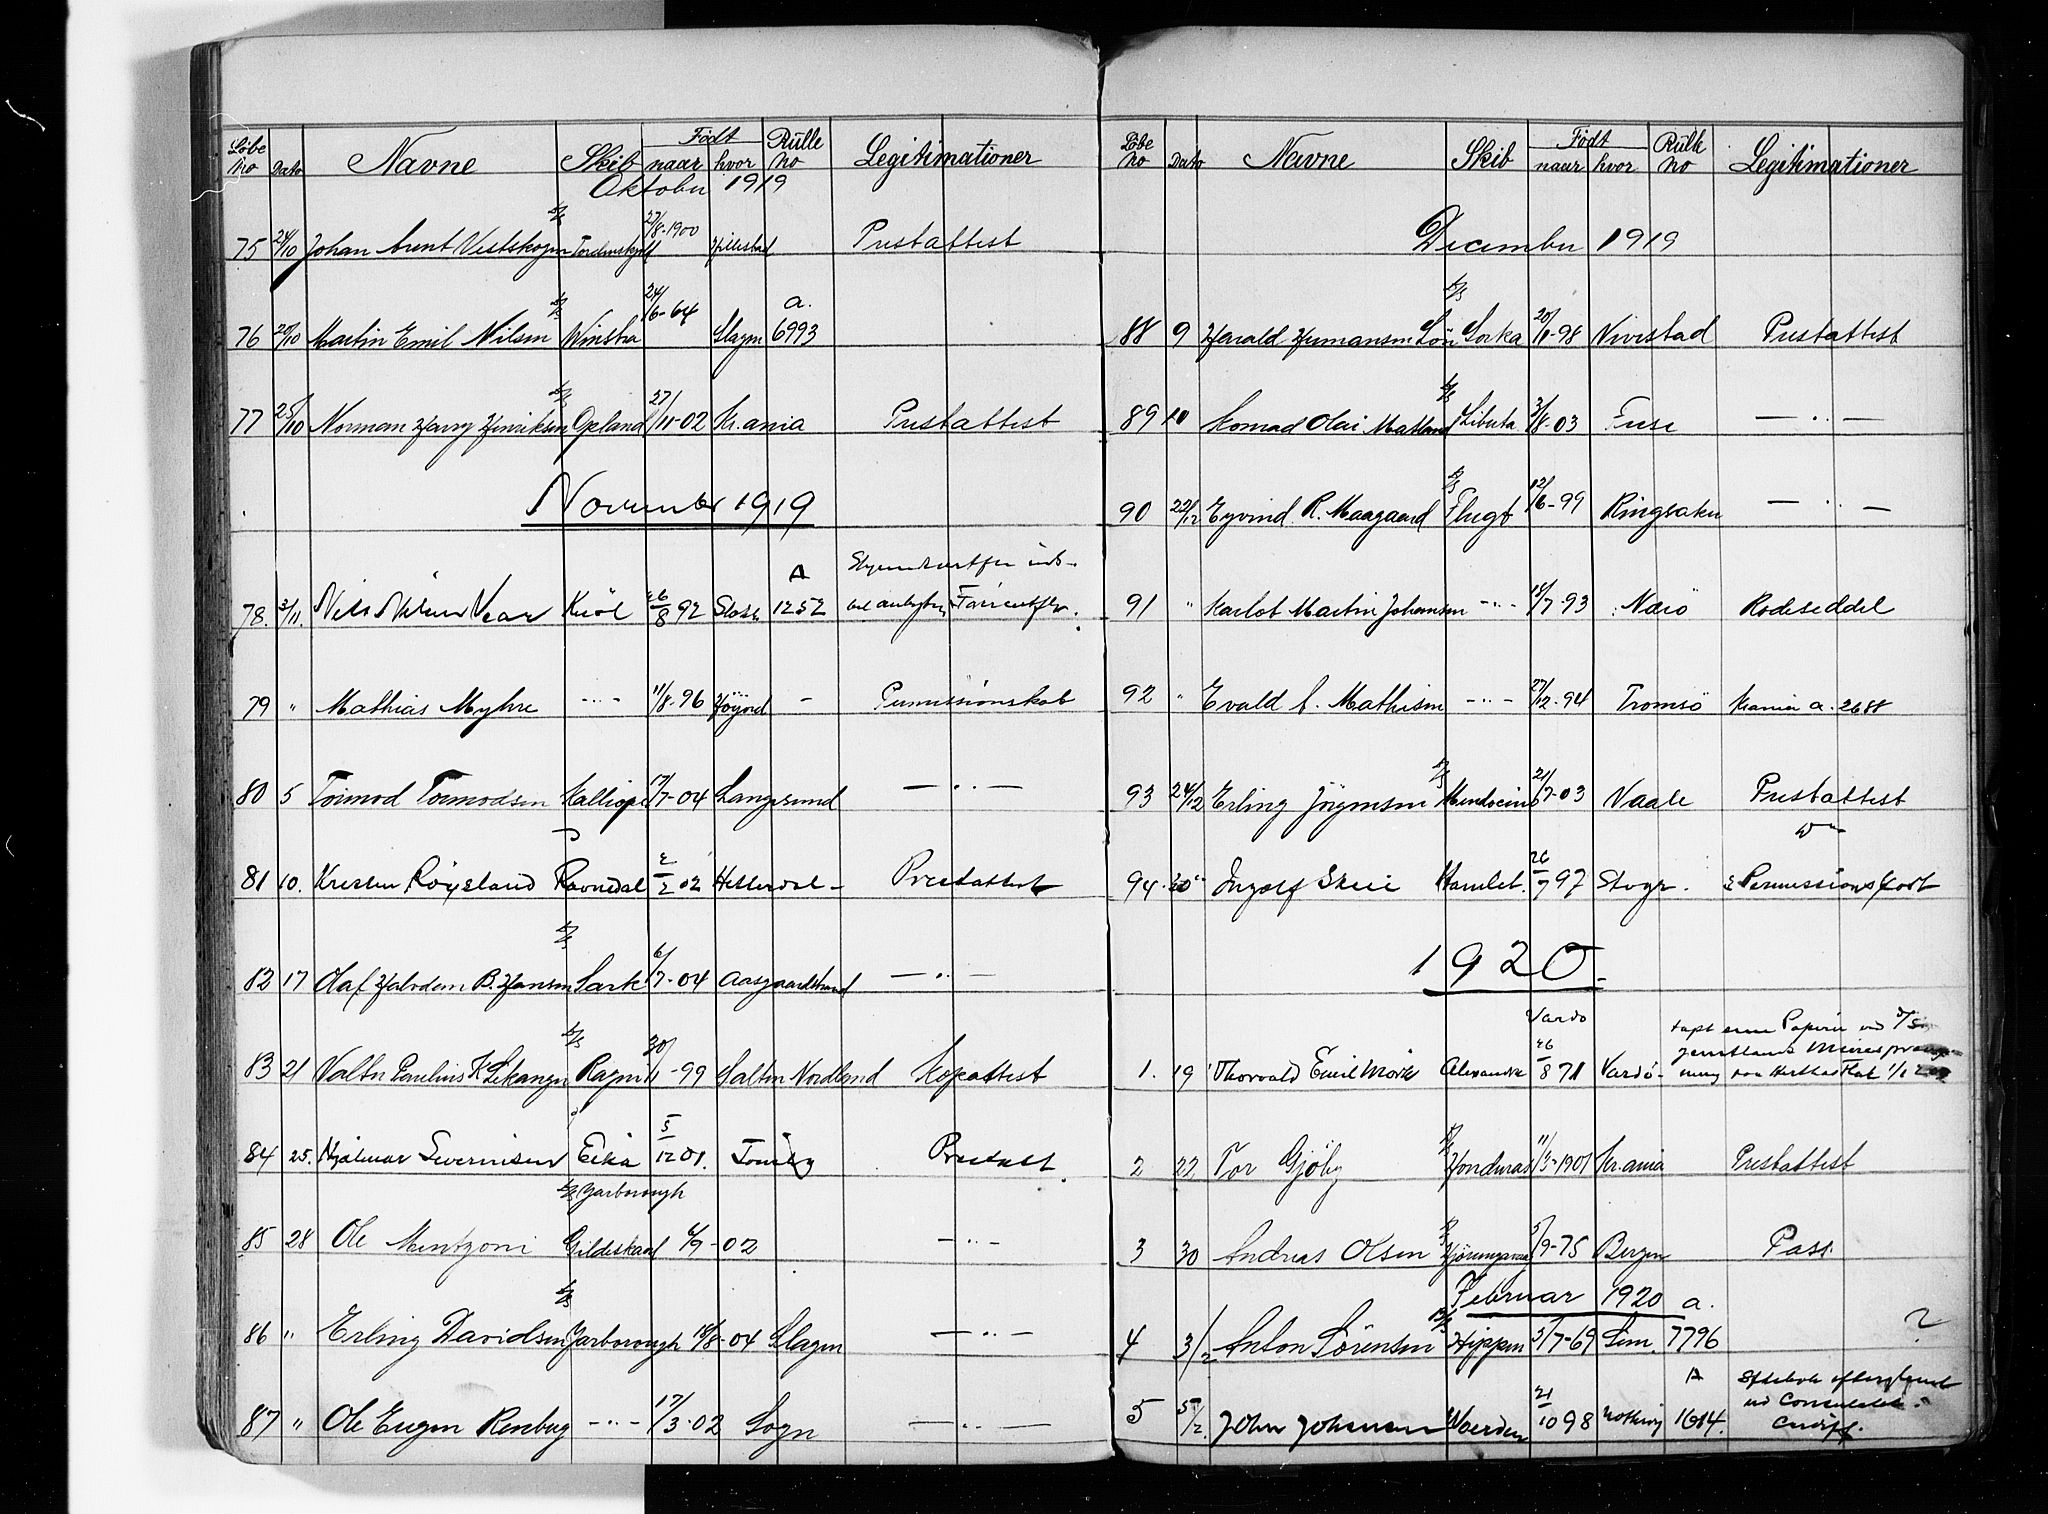 Løbe no Dato Navne Skib Født naar hvor Rulle no Legitimationer
Oktober 1919
75 24/10 Johan Arent Vestskogen S/S Tordenskjold 27/8-1900 Hillestad Prestattest
76 20/10 Martin Emil Nilsen S/S Winstra 24/6-64 Slagen a. 6993
77 25/10 Norman Harry Henriksen S/S Opland 27/11-02 Kr.ania Prestattest
November 1919
78. 3/11. Nils Nilsen 26/8 92 A 1252
79 " Mathias Myhre -"- 11/8-96 Høijord - Permissionskob
80 5 Tormod Tormodsen Kalliope 17/7-04 Langesund -"-
81 10. Kresten Röysland Ravnedal 2/2 02 Hitterdal - Prestattest
82 17 Olaf Halvdem B. Hansen S/S Sark 6/7-04 Aasgaardstrand -"-
83 21 Valter Paulius K Lekangen S/S Ragni 30/1-99 Salten Nordland Kopattest
84 25. Hjalmar Severinsen Eika 5/12 01. Prestatt
S/S Yarborough
85 28 Ole Mentzoni Gildeskaal 6/9-02 -"-
86 " Erling Davidsen S/S Yarborough 18/8-04 Slagen -"-
87 " Ole Eugen Renberg -"- 17/3-02 Sogn -"-
Løbe no Dato Navne Skib Født naar hvor Rulle no Legitimationer
December 1919
88 9 Harald Hermansen S/S Sorka 20/11-98 Nivistad Prestattest
89 10 Konrad Olai Matland S/S Liberta 3/8-03 Fuse -"-
90 22/12 Eyvind R. Maagaard S/S Flugt 12/6-99 Ringsaker -"-
91 " Karlot Martin Johansen -"- 18/7-93 Nærö Rodeseddel
92 " Evald C. Mathisen -"- 27/12-94 Tromsö Krania a. 2688
93 24/12 Erling Jörgensen S/S Mendocino 21/7-03 Vaale Prestattest
94. 30 Ingolf Skeie Hamlet. 26/7 97 Permissions kort
1920.
Vardø
1. 19 Thorvald Emil Mörk Alexandra 26/8 71 Vardö - tapt sine Papirer ved
2 22 Tor Gjöby S/S Honduras 11/5-1901 Kr.ania Prestattest
3 30 Andreas Olsen S/S Hjörungavaag 5/9-75 Bergen Pass.
Februar 1920
4 3/2 Anton Sörensen Hippen 5/7-69 Sem. a. 7796 ?
5 5/2. John Johansen Woerden 21/10 98 A 1614. ved Consulatet Cardiff.